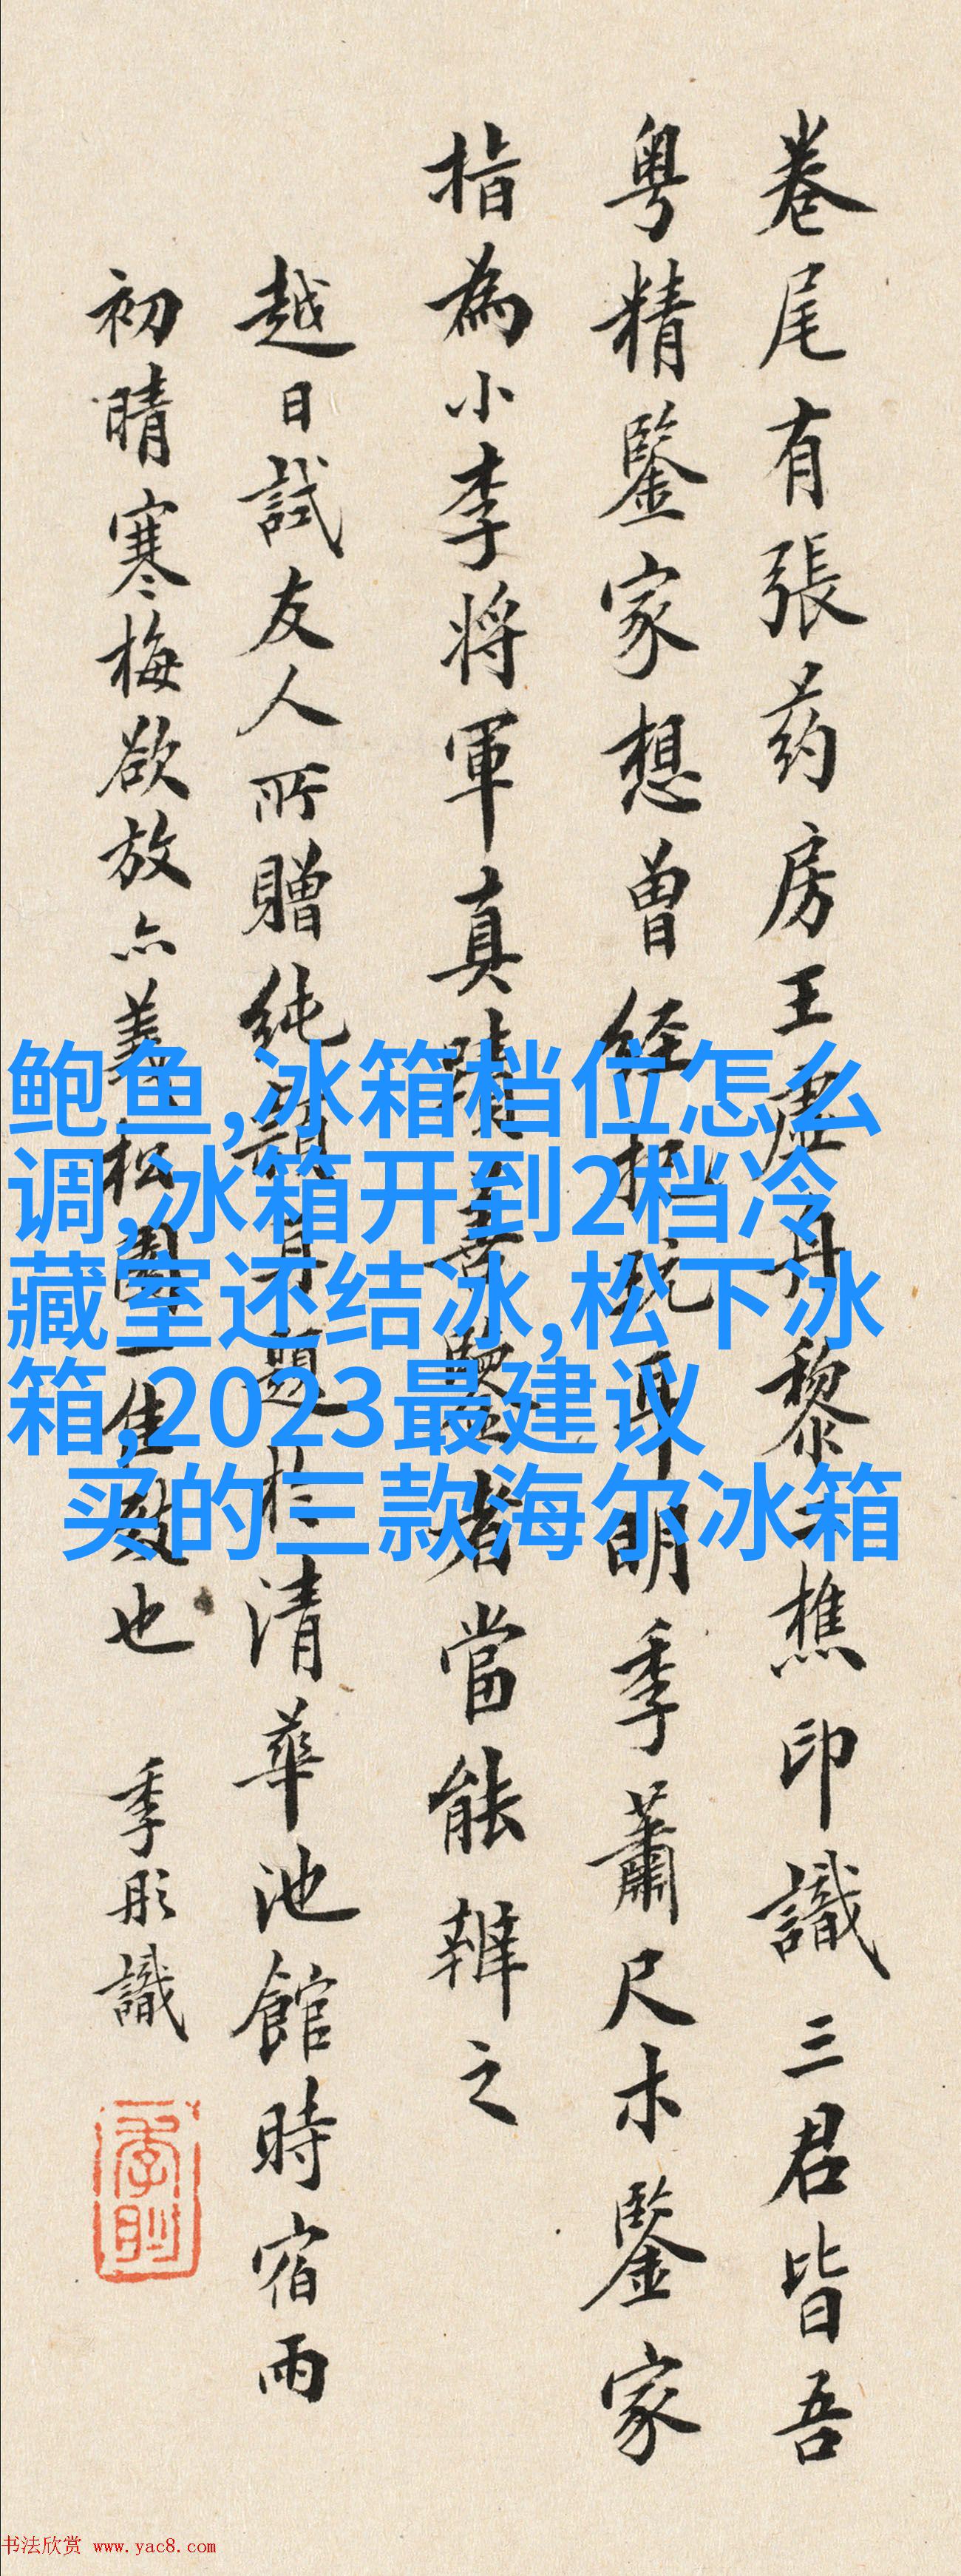 卷尾有張药房王虚舟黎二樵印識三君皆吾
粤精鑒家想曾經把玩耳明季蕭尺木鑒家
指為小李将軍真蹟善鑒者當能辨之
越日試友人所贈純穎再題於清華池館時宿雨
初晴寒梅欲放亦松園一佳致也 季彤識
鲍鱼,冰箱档位怎么
调,冰箱开到2档冷
藏室还结冰,松下冰
箱,2023最建议
买的三款海尔冰箱
书法欣赏 www.yac8.com